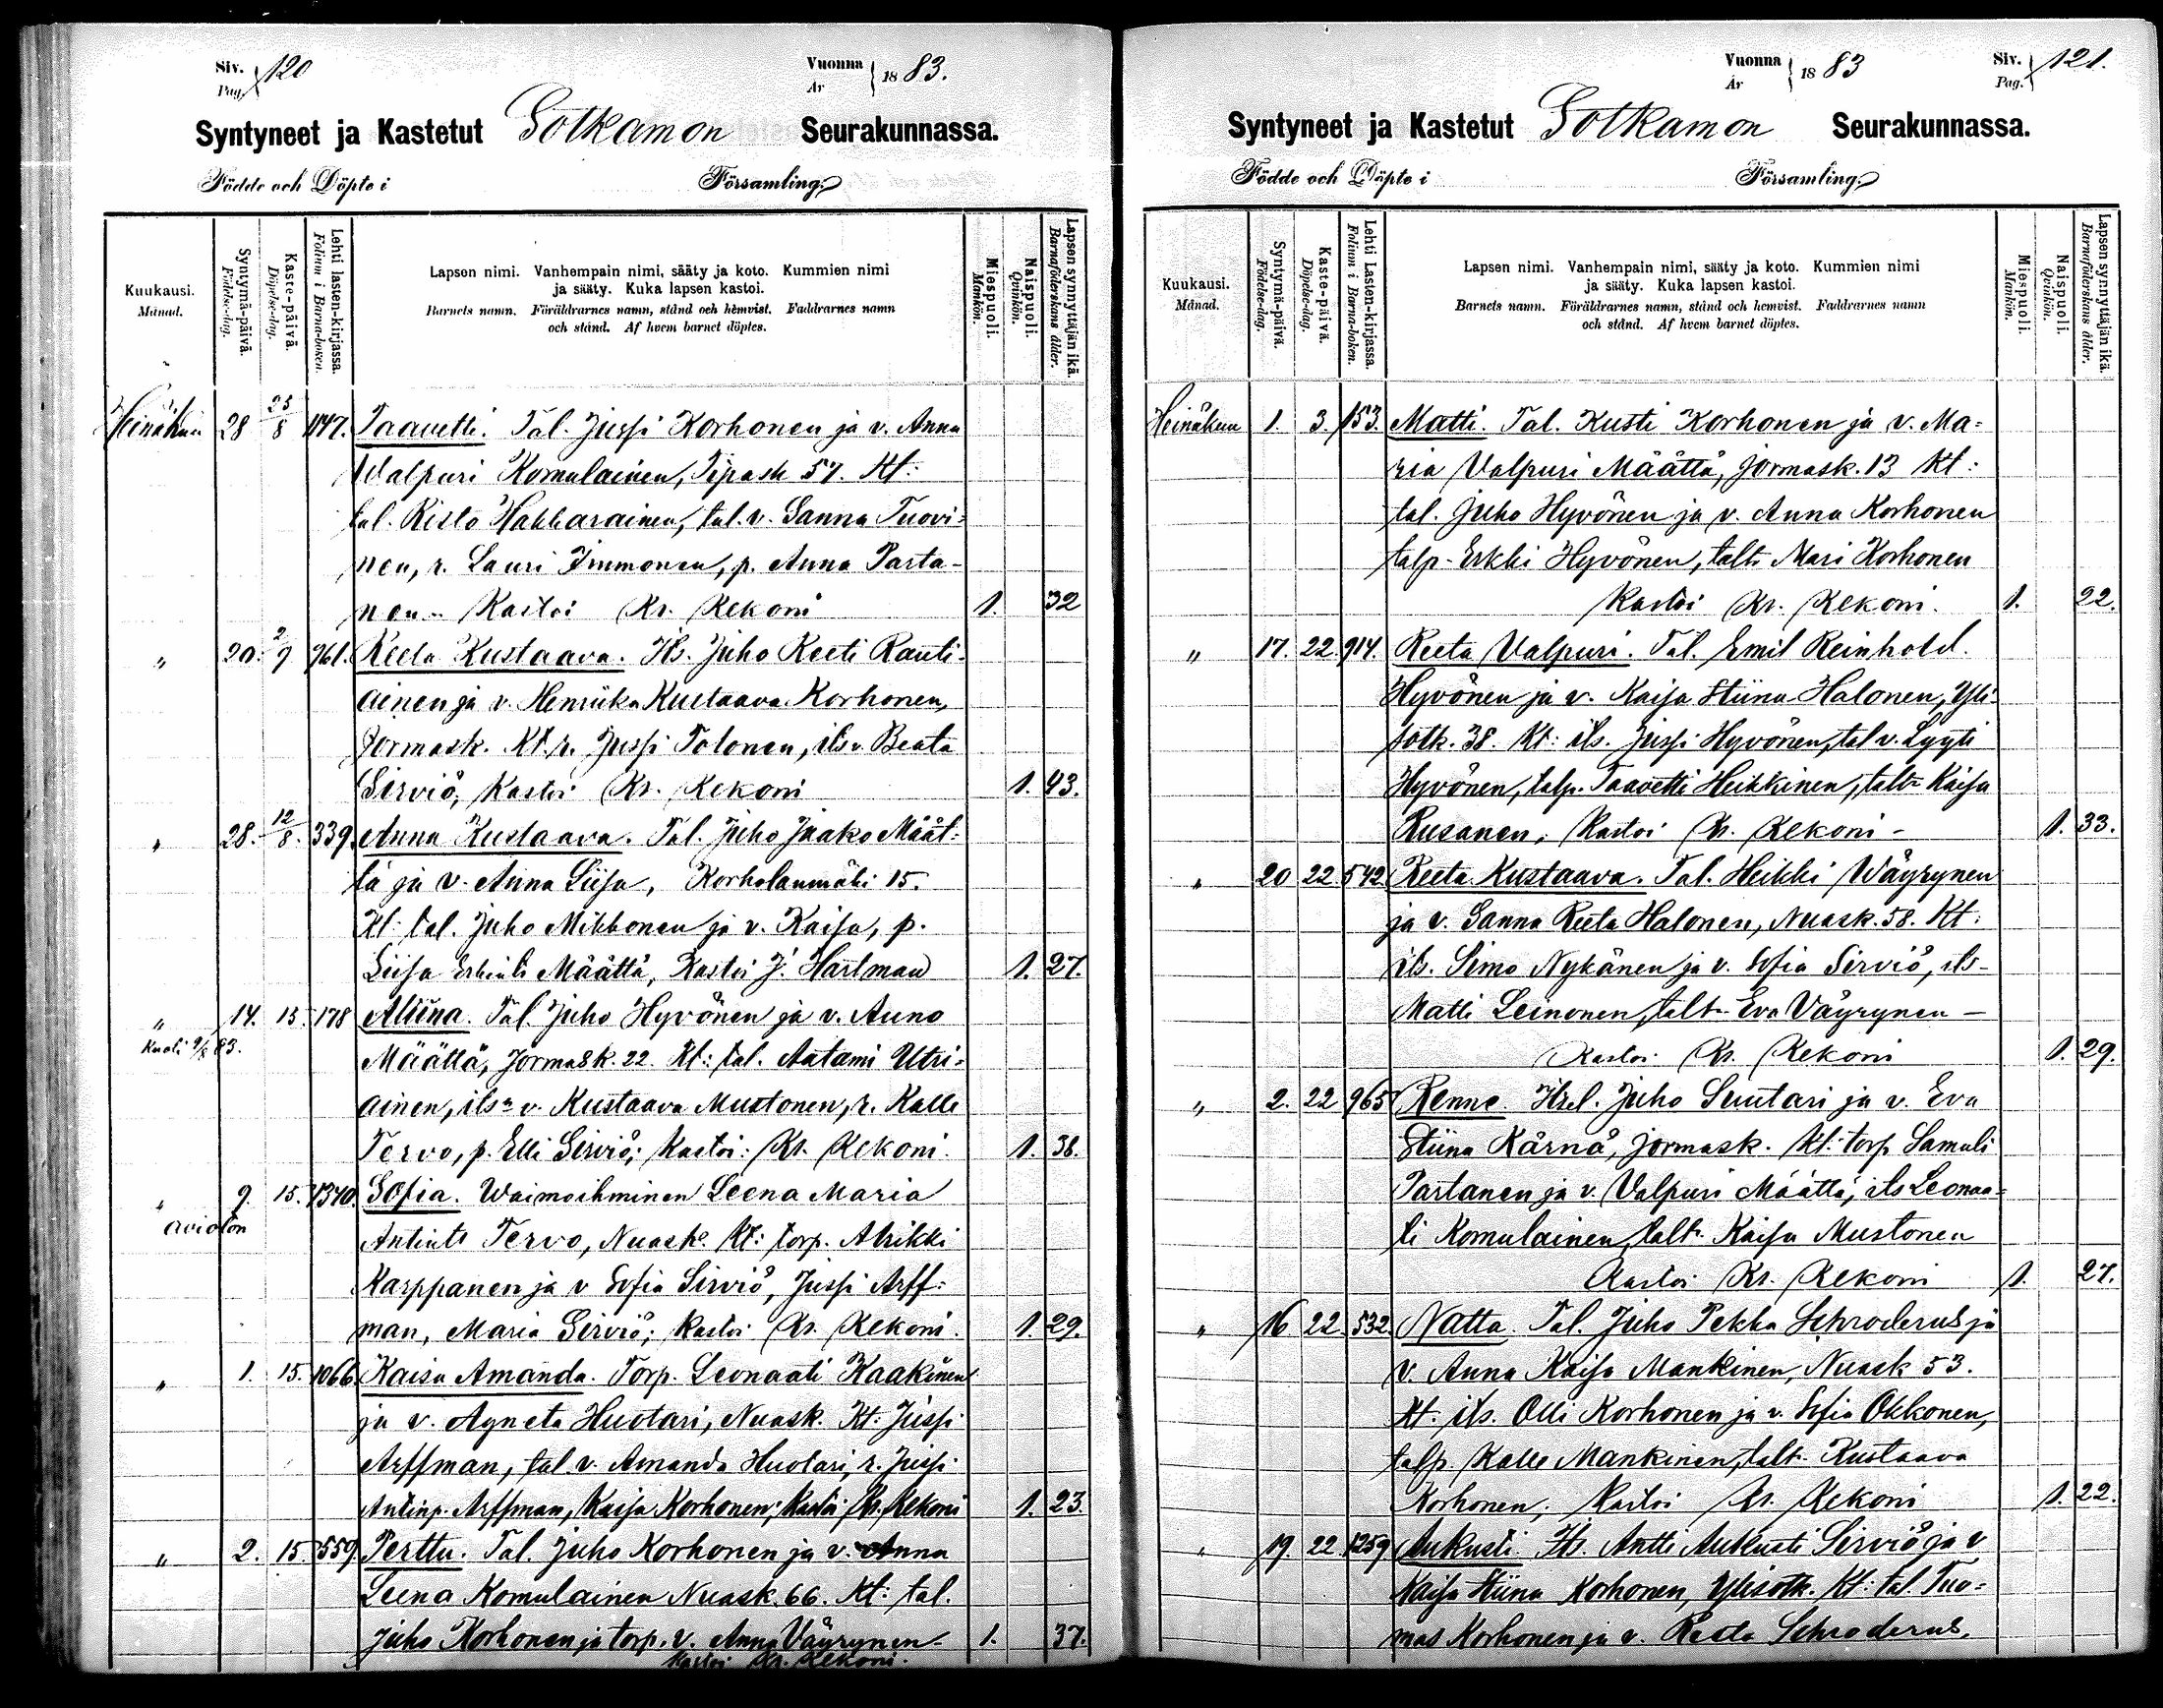 Siv. Pag. 120
Vuonna År 1883.
Syntyneet ja Kastetut Sotkamon Seurakunnassa.
Födde och Döpte i Församling.
Kuukausi. Månad.
Syntymä-päivä. Födelse-dag.
Kaste-päivä. Döpelse-dag.
Lehti lasten-kirjassa. Folium i Barna-boken.
Lapsen nimi. Vanhempain nimi, sääty ja koto. Kummien nimi
ja sääty. Kuka lapsen kastoi.
Barnets namn. Föräldrarnes namn, stånd och hemvist. Faddrarnes namn
och stånd. Af hvem barnet döptes.
Miespuoli. Mankön.
Naispuoli. Qvinkön.
Lapsen synnyttäjän ikä. Barnaföderskans ålder.
Heinäkuu 28 25/8 1147. Taavetti. Tal. Jussi Korhonen ja v. Anna
Walpuri Komulainen, Tipask 57. Kt:
tal. Risto Hakkarainen, tal. v. Sanna Tuovi-
nen, r. Lauri Immonen, p. Anna Parta-
nen .. Kastoi Kr. Rekoni 1. 32
„ 20. 2/9 961. Reeta Kustaava. Its. Juho Reeti Rauti-
ainen ja v. Henriika Kustaava Korhonen,
Jormask. Kt. r. Jussi Tolonen, its v. Beata
Sirviö; Kastoi Kr. Rekoni 1. 43.
„ 28. 12/8. 339. Anna Kustaava. Tal. Juho Jaako Määt-
tä ja v. Anna Liisa, Korholanmäki 15.
Kt: tal. Juho Mikkonen ja v. Kaisa, p.
Liisa Määttä, Kastoi J. Hartman 1. 27.
„ 14. 15. 178 Alviina. Tal. Juho Hyvönen ja v. Anna
Kuoli 9/8 83.
Määttä, Jormask. 22. Kt: tal. Aatami Utri-
ainen, its v. Kustaava Mustonen, r. Kalle
Tervo, p. Elli Sirviö; Kastoi: Kr. Rekoni. 1. 38.
„ 9. 15. 1340. Sofia. Waimoihminen Leena Maria
avioton
Antint. Tervo, Nuask. Kt: torp. Abrikki
Karppanen ja v Sofia Sirviö, Jussi Arff-
man, Maria Sirviö; Kastoi Kr. Rekoni. 1. 29.
„ 1. 15. 1066 Kaisa Amanda. Torp. Leonaati Kaakinen
ja v. Agneta Huotari, Nuask. Kt: Jussi
Arffman, tal. v. Amanda Huotari, r. Jussi
Antinp. Arffman, Kaisa Korhonen; Kastoi; Kr. Rekoni 1. 23.
„ 2. 15. 559 Perttu. Tal. Juho Korhonen ja v. Anna
Leena Komulainen Nuask. 66. Kt: tal.
Juho Korhonen ja torp. v. Anna Väyrynen. 1. 37.
Kastoi Kr. Rekoni.
Vuonna År 1883
Siv. Pag. 121.
Syntyneet ja Kastetut Sotkamon Seurakunnassa.
Födde och Döpte i Församling.
Kuukausi. Månad.
Syntymä-päivä. Födelse-dag.
Kaste-päivä. Döpelse-dag.
Lehti Lasten-kirjassa. Folium i Barna-boken.
Lapsen nimi. Vanhempain nimi, sääty ja koto. Kummien nimi
ja sääty. Kuka lapsen kastoi.
Barnets namn. Föräldrarnes namn, stånd och hemvist. Faddrarnes namn
och stånd. Af hvem barnet döptes.
Miespuoli. Mankön.
Naispuoli. Qvinkön.
Lapsen synnyttäjän ikä. Barnaföderskans ålder.
Heinäkuu 1. 3. 153. Matti. Tal. Kusti Korhonen ja v. Ma-
ria Valpuri Määttä, Jormask. 13 Kt:
tal. Juho Hyvönen ja v. Anna Korhonen
talp. Erkki Hyvönen, talt. Mari Korhonen
Kastoi Kr. Rekoni. 1. 22.
„ 17. 22. 914. Reeta Valpuri. Tal. Emil Reinhold.
Hyvönen ja v. Kaisa Stiina Halonen, Yli-
sotk. 38. Kt: its. Jussi Hyvönen, tal v. Lyyti
Hyvönen, talp. Taavetti Heikkinen, talt. Kaisa
Rusanen; Kastoi Kr. Rekoni - 1. 33.
„ 20 22 542 Reeta Kustaava. Tal. Heikki Wäyrynen
ja v. Sanna Reeta Halonen, Nuask. 58. Kt:
its. Simo Nykänen ja v. Sofia Sirviö, its-
Matti Leinonen, talt. Eva Väyrynen -
Kastoi Kr. Rekoni 1. 29.
„ 2. 22 965 Renne Itsel. Juho Suutari ja v. Eva
Stiina Kärnä, Jormask. Kt: torp Samuli
Partanen ja v. Valpuri Määttä, its Leonaa-
ti Komulainen, talt. Kaisa Mustonen
Kastoi Kr. Rekoni 1. 27.
„ 16 22. 532 Natta. Tal. Juho Pekka Schroderus ja
v. Anna Kaisa Mankinen, Nuask 53.
Kt: its. Olli Korhonen ja v. Sofia Okkonen,
talp. Kalle Mankinen, talt. Kustaava
Korhonen; Kastoi Kr. Rekoni 1. 22.
„ 19. 22 1259 Aukusti. Its. Antti Aukusti Sirviö ja v
Kaisa Stiina Korhonen, Ylisotk. Kt: tal. Tuo-
mas Korhonen ja v. Reeta Schroderus,